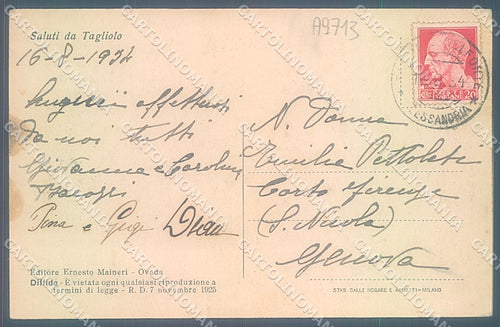 Saluti da Tagliolo
A9713
16-8-1934
Auguri affettuosi
da noi tutti
Giovanna e Carolina
Pina e Gigi
N. Donna
Emilia
Corso Firenze
(S. Nicola)
Genova
ALESSANDRIA
Editore Ernesto Maineri - Ovada
Diffida - È vietata ogni qualsiasi riproduzione a
termini di legge - R. D. 7 novembre 1925
STAB. DALLE NOGARE E ARMETTI - MILANO
CARTOLINOMANIA